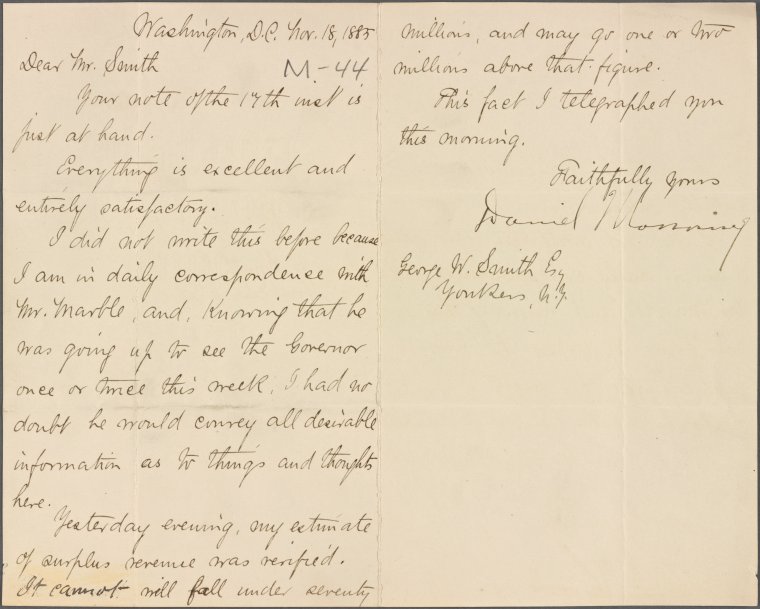 Washington, D.C. Nov. 18, 1885
Dear Mr. Smith
M-44
Your note of the 17th inst is
just at hand.
Everything is excellent and
entirely satisfactory.
I did not write this before because
I am in daily correspondence with
Mr. Marble, and, Knowing that he
was going up to see the Governor
once or twice this week, I had no
doubt he would convey all desirable
information as to things and thoughts
here.
Yesterday evening, my estimate
of surplus revenue was verified.
It cannot well fall under seventy
millions, and may go one or two
millions above that figure.
This fact I telegraphed you
this morning.
Faithfully yours
Daniel Manning
George W. Smith Esq
Yonkers, N.Y.